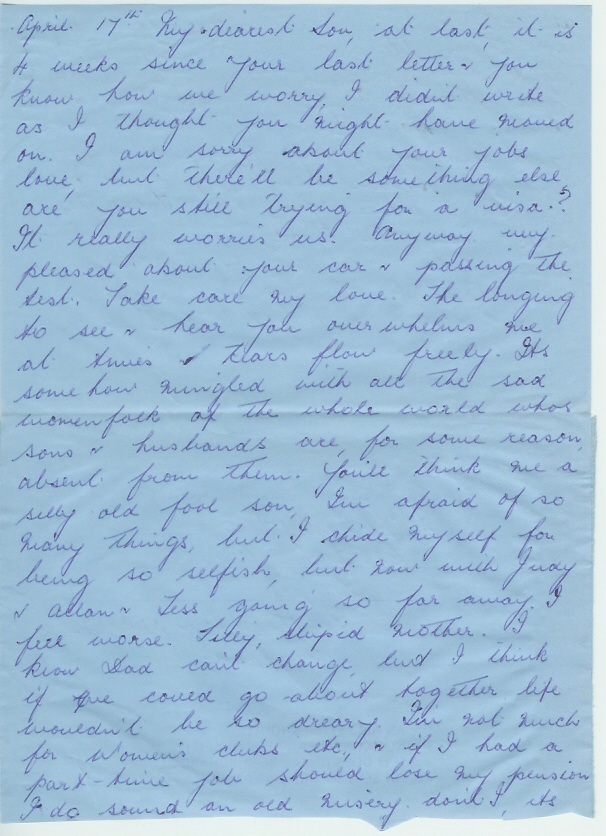 April 17th My dearest Son, at last, it is
4 weeks since your last letter & you
know how we worry, I didn't write
as I thought you might have moved
on. I am sorry about your jobs
love, but there'll be something else,
are you still trying for a visa.?
It really worries us. Anyway very
pleased about your car & passing the
test. Take care my love. The longing
to see & hear you overwhelms me
at times & tears flow freely. Its
somehow mingled with all the sad
womenfolk of the whole world whos
sons & husbands are, for some reason,
absent from them. You'll think me a
silly old fool son, I'm afraid of so
many things, but I chide myself for
being so selfish, but now with Judy
& Allan & Tess going so far away I
feel worse. Silly, stupid mother. I
know Dad can't change, but I think
if we could go about together life
wouldn't be so dreary. I'm not much
for Women's clubs etc, & if I had a
part-time job should lose my pension
I do sound an old misery don't I, its